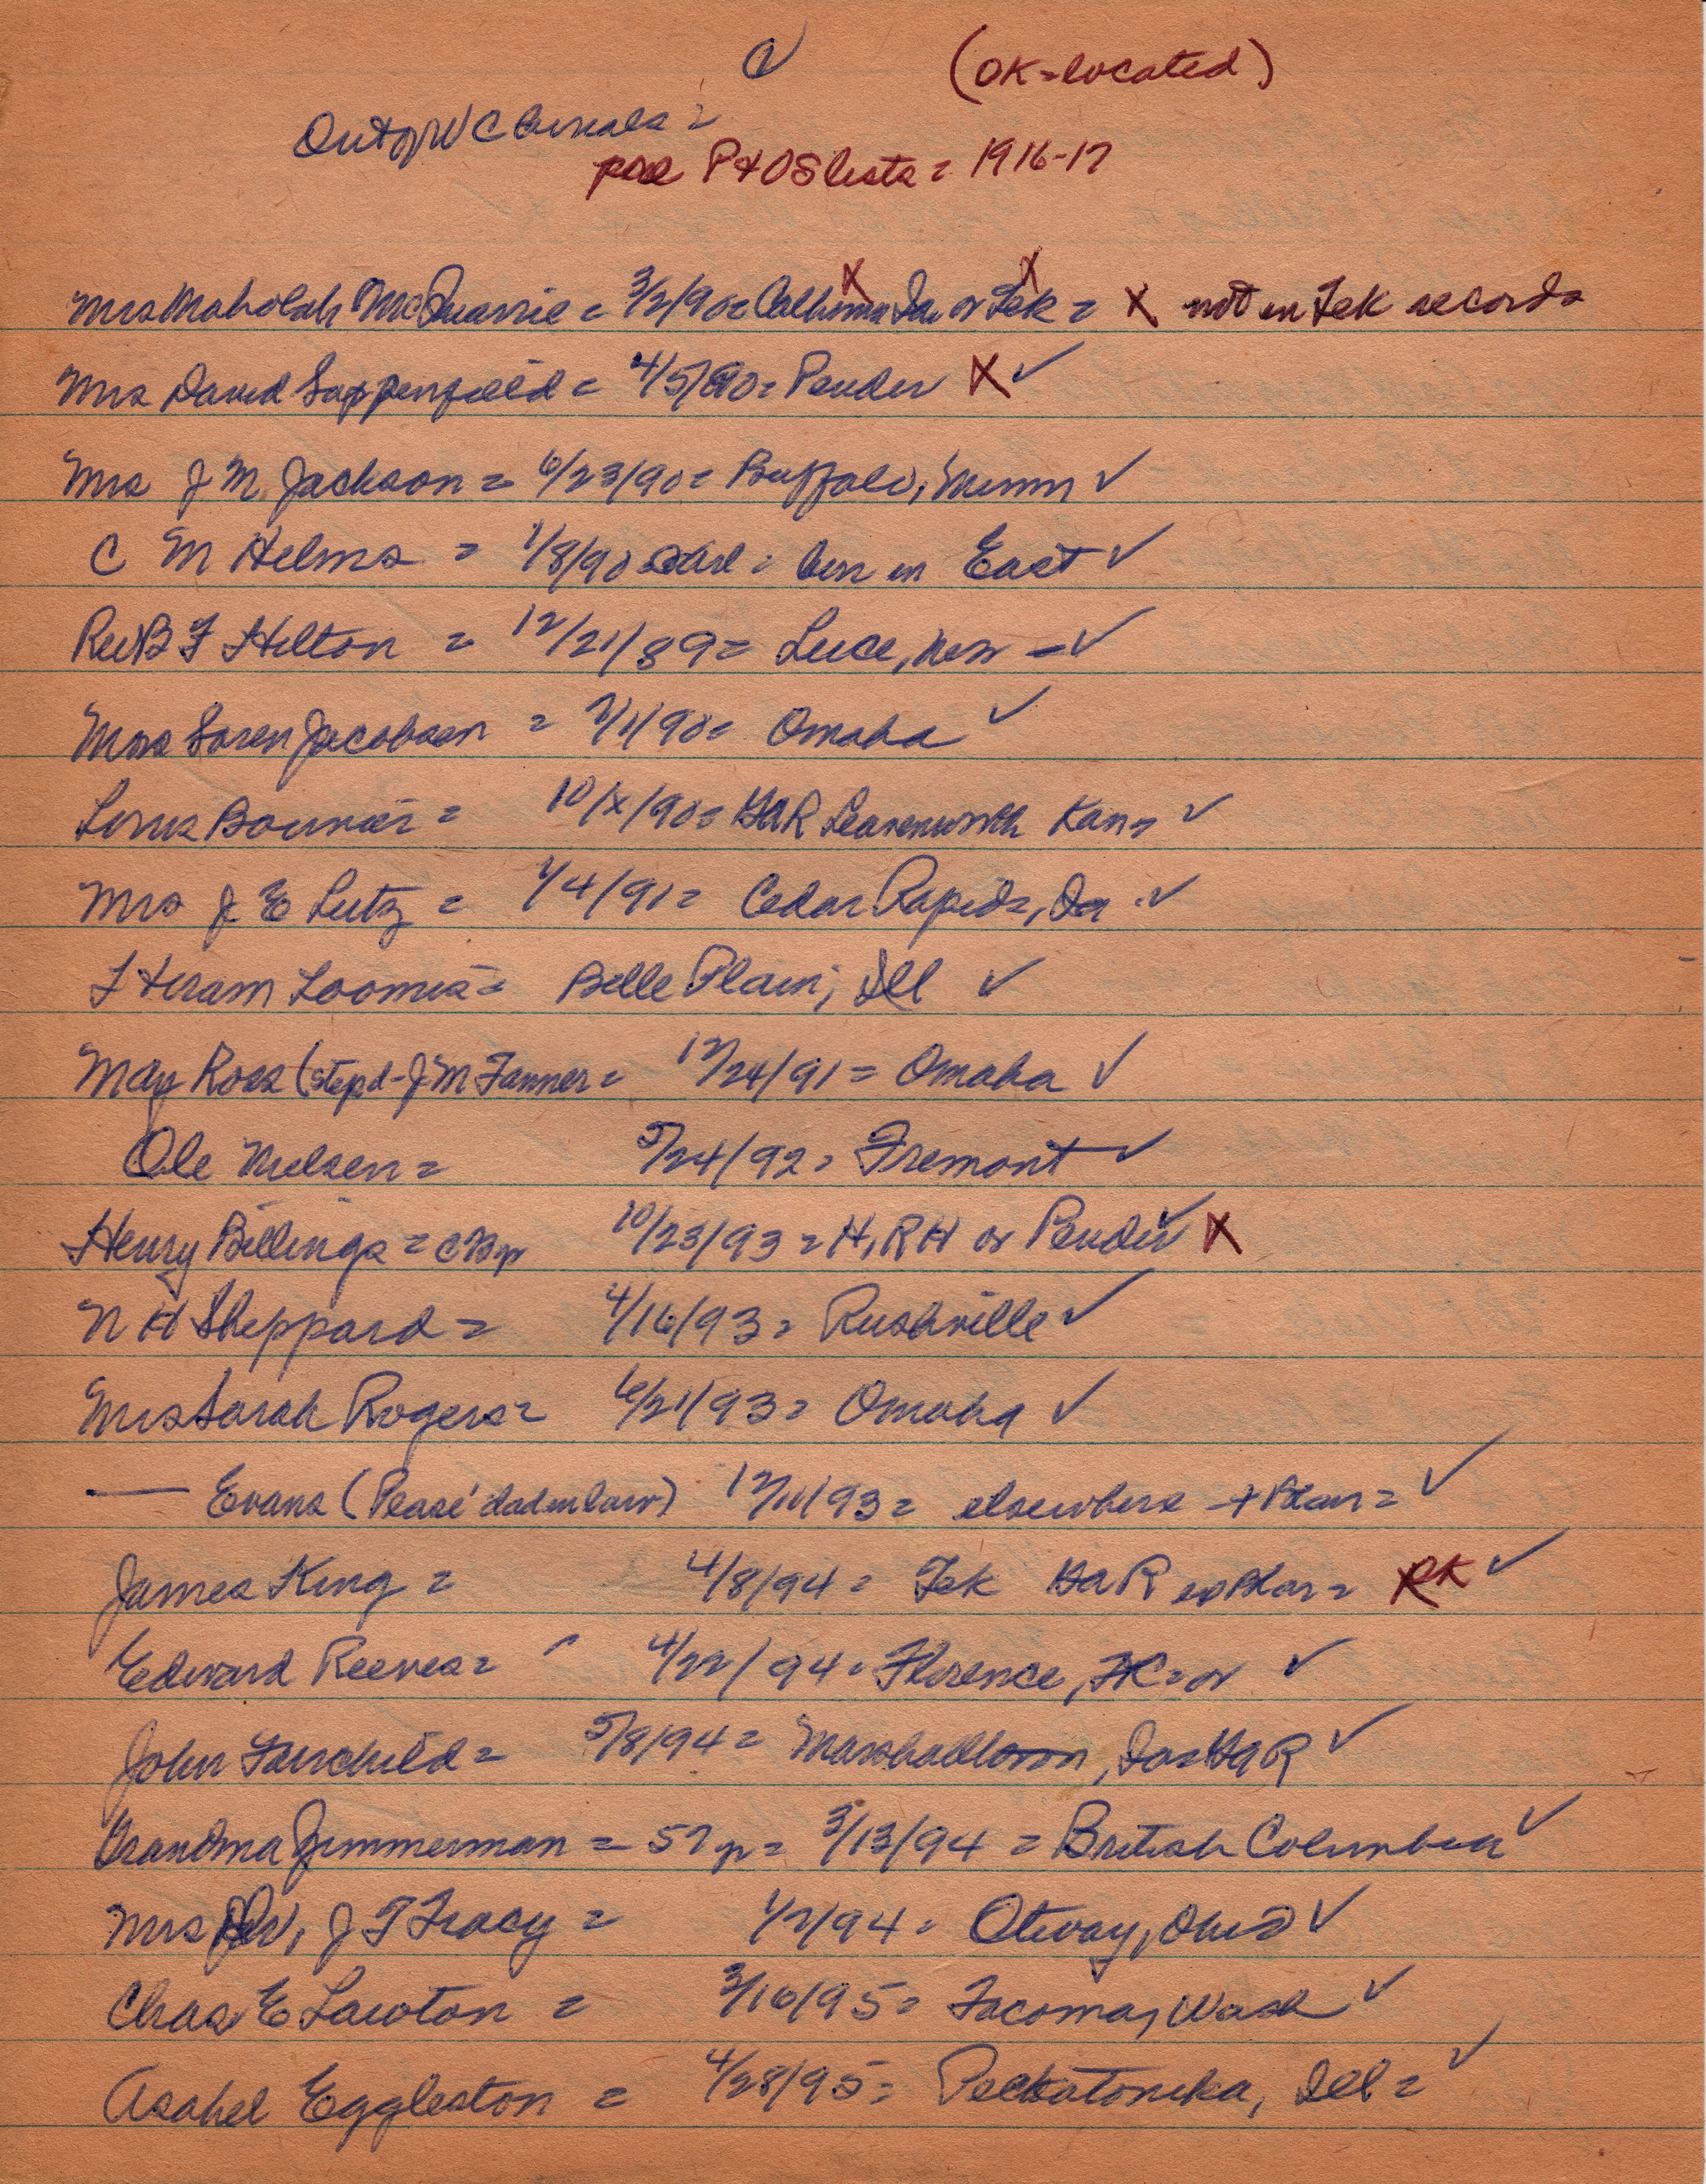 (OK=located)
Out of W C Burials =
P+OS lists = 1916-17
Mrs Maholah McQuarrie = 3/2/90 = Calhoun Ia or Tek = X not in Tek records
Mrs David Sappenfield = 4/5/90 = Pender X ✓
Mrs J M Jackson = 6/23/90 = Buffalo, Minn ✓
C M Helms = 1/8/90 = in East ✓
Rev B F Hilton = 12/21/89 = Luce, - ✓
Mrs Soren Jacobsen = /90 = Omaha ✓
Louis = 10/x/90 = GAR Leavenworth Kans ✓
Mrs J E Lutz = 1/4/91 = Cedar Rapids, Ia ✓
Hiram Loomis = Belle Plain, Ill ✓
May Ross (stepd-J M Tanner = 12/24/91 = Omaha ✓
Ole Nielsen = 5/24/92 = Fremont ✓
Henry Billings = 10/23/93 = H, RH or Pender ✓ X
N H Sheppard = 4/16/93 = Rushville ✓
Mrs Sarah Rogers = 6/21/93 = Omaha ✓
— Evans (Pease' dad in law) 93 = elsewhere + Blair = ✓
James King = 4/8/94 = Tek GAR Blair = ✓
Edward Reeves = 4/22/94 = Florence, or ✓
John Fairchild = 5/8/94 = Marshalltown, Ia = GAR ✓
Grandma Zimmerman = 57 yr = 3/13/94 = British Columbia ✓
Mrs Rev, J T Tracy = 1/2/94 = Otway, Ohio ✓
Chas E Lawton = 3/10/95 = Tacoma, Wash ✓
Asahel Eggleston = 4/28/95 = Peckatonika, Ill = ✓